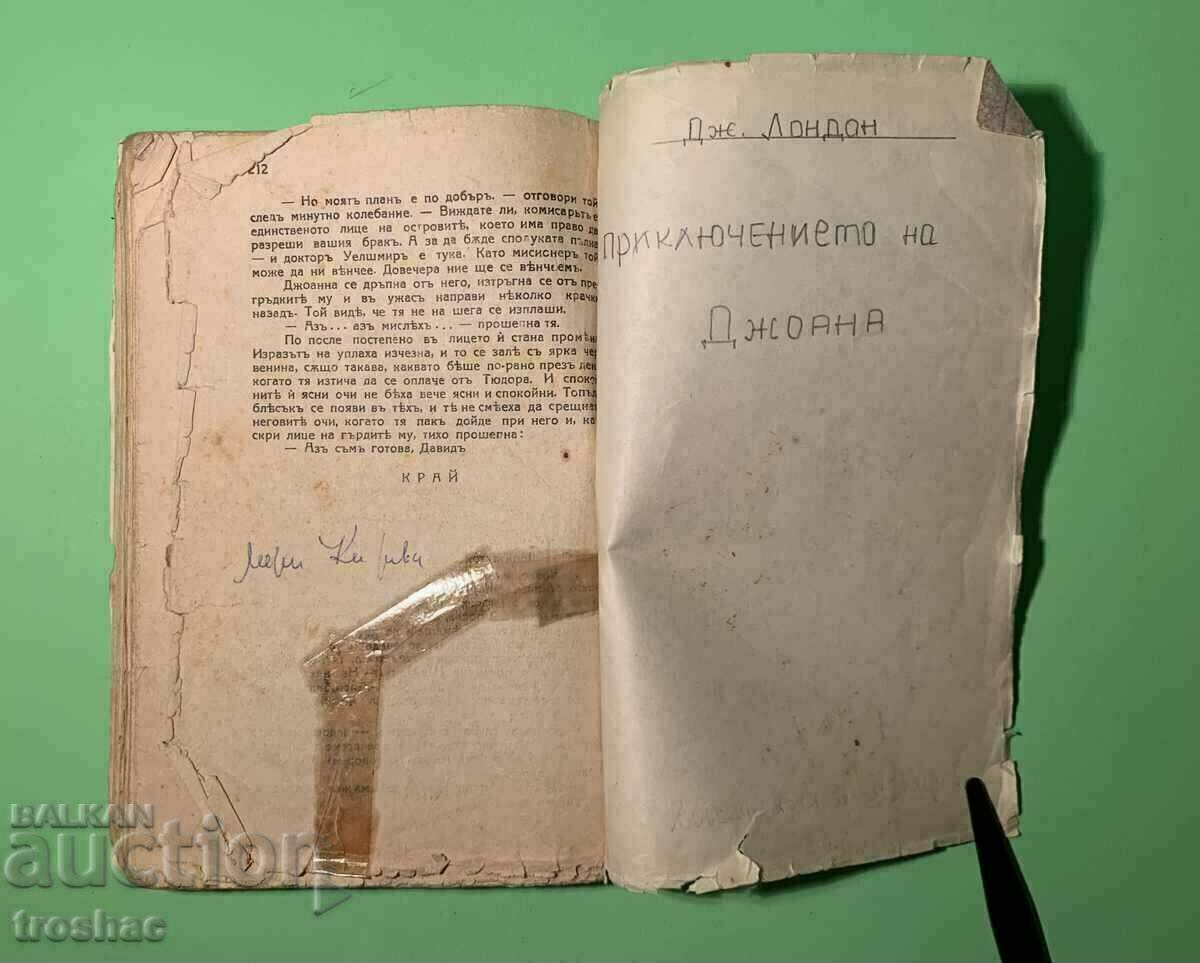 212
— Но моятъ планъ е по добъръ. — отговори той
следъ минутно колебание. — Виждате ли, комисарьтъ е
единственото лице на островитѣ, което има право да
разреши вашия бракъ. А за да бѫде сполуката пълна
— и докторъ Уелшмиръ е тука. Като мисионеръ той
може да ни вѣнчее. Довечера ние ще се вѣнчеемъ.
Джоанна се дръпна от него, изтръгна се отъ пре
грѫдките му и въ ужасъ направи нѣколко крачки
назадъ. Той видѣ, че тя не на шега се изплаши.
— Азъ... азъ мислѣхъ... — прошепна тя.
По после постепено въ лицето ѝ стана промѣна
Изразътъ на уплаха изчезна, и то се залѣ съ ярка чер
венина, сѫщо такава, каквато бѣше по-рано презъ
когато тя изтича да се оплаче отъ Тюдора. И
нитѣ ѝ ясни очи не бѣха вече ясни и спокойни.
блѣсъкъ се появи въ тѣхъ, и тѣ не смѣеха да
неговитѣ очи, когато тя пакъ дойде при него и,
скри лице на гърдитѣ му, тихо прошепна:
— Азъ съмъ готова, Давидъ
КРАЙ
Дж. Лондон
приключението на
Джоана
BALKAN
auction
troshac